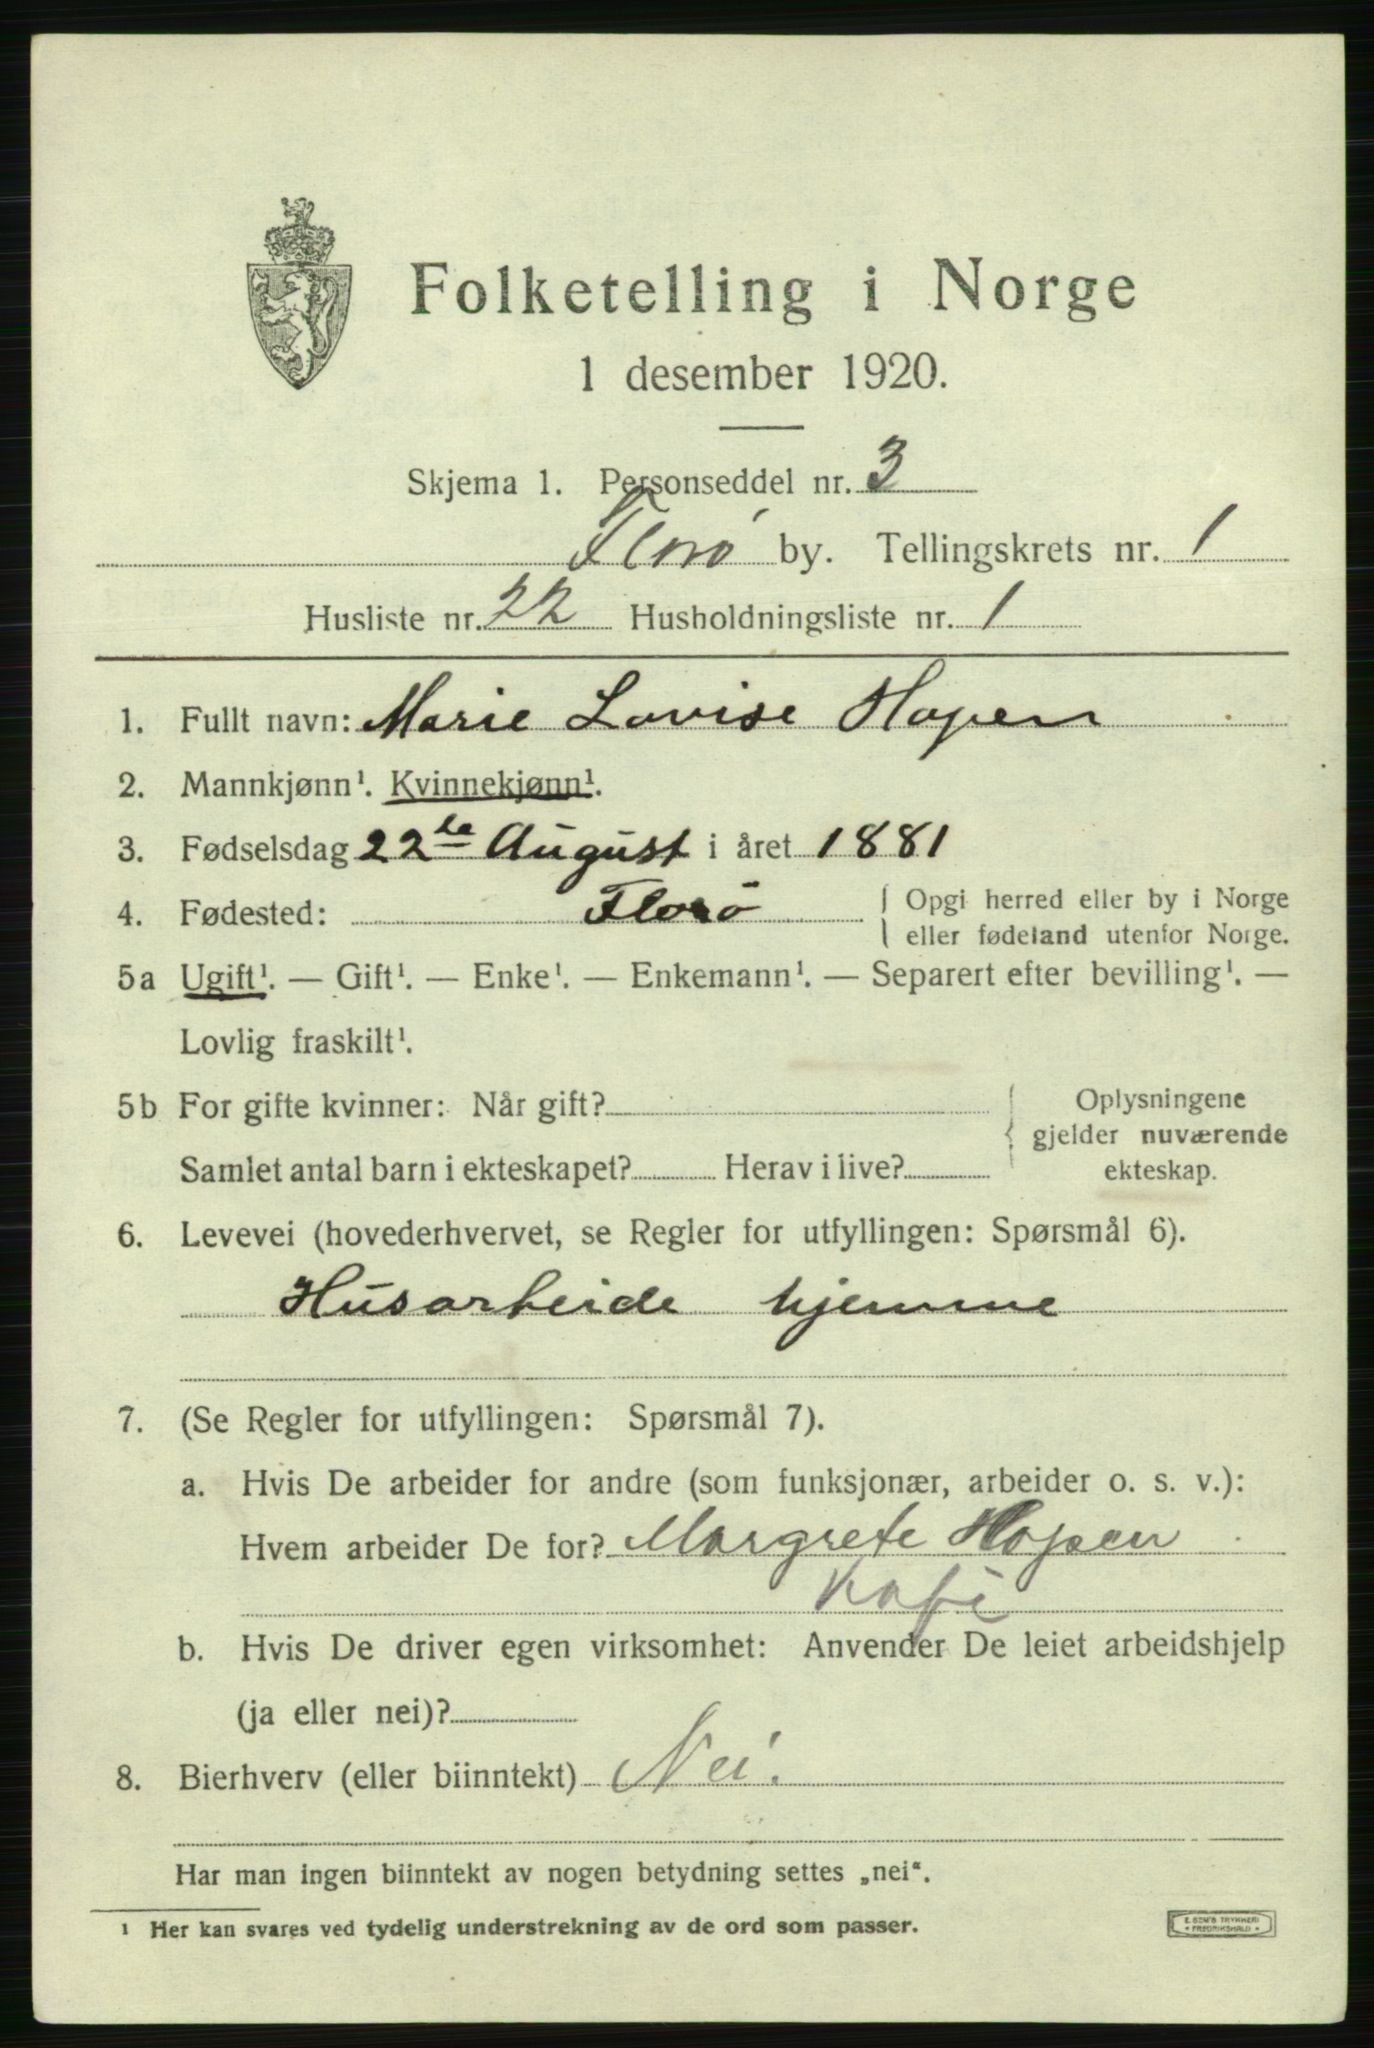 Folketelling i Norge
1 desember 1920.
Skjema 1. Personseddel nr. 3
Florø by. Tellingskrets nr. 1
Husliste nr. 22 Husholdningsliste nr. 1
1. Fullt navn: Marie Lovise Hopen
2. Mannkjønn¹. Kvinnekjønn¹.
3. Fødselsdag 22de August i året 1881
4. Fødested: Florø { Opgi herred eller by i Norge
eller fødeland utenfor Norge.
5a Ugift¹. — Gift¹. — Enke¹. — Enkemann¹. — Separert efter bevilling¹. —
Lovlig fraskilt¹.
5b For gifte kvinner: Når gift? { Oplysningene
gjelder nuværende
Samlet antal barn i ekteskapet? Herav i live? ekteskap.
6. Levevei (hovederhvervet, se Regler for utfyllingen: Spørsmål 6).
Husarbeide hjemme
7. (Se Regler for utfyllingen: Spørsmål 7).
a. Hvis De arbeider for andre (som funksjonær, arbeider o. s. v.):
Hvem arbeider De for? Margrete Hopen
Kafé
b. Hvis De driver egen virksomhet: Anvender De leiet arbeidshjelp
(ja eller nei)?
8. Bierhverv (eller biinntekt) Nei.
Har man ingen biinntekt av nogen betydning settes „nei“.
¹ Her kan svares ved tydelig understrekning av de ord som passer.
E. SEM'S TRYKKERI
• FREDRIKSHALD •